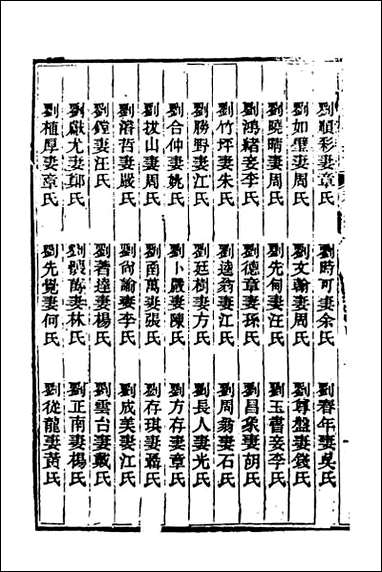 劉順彩妻章氏 劉時可妻余氏 劉春年妻吳氏
劉如璧妻周氏 劉文翰妻周氏 劉尊盤妻錢氏
劉曉晴妻周氏 劉先甸妻汪氏 劉玉書妾李氏
劉鴻緒妾李氏 劉德章妻孫氏 劉昌象妻胡氏
劉竹坪妻朱氏 劉逵翁妻江氏 劉周翁妻石氏
劉勝野妻江氏 劉廷樹妻方氏 劉長人妻光氏
劉合仲妻姚氏 劉卜嚴妻陳氏 劉方存妻章氏
劉拔山妻周氏 劉南萬妻張氏 劉存琪妻聶氏
劉濬哲妻嚴氏 劉尙諭妻李氏 劉成美妻江氏
劉鏜妻汪氏 劉著達妻楊氏 劉雲台妻戴氏
劉猷尤妻鄭氏 劉體萬妻林氏 劉正南妻楊氏
劉植厚妻章氏 劉先覺妻何氏 劉從龍妻黃氏